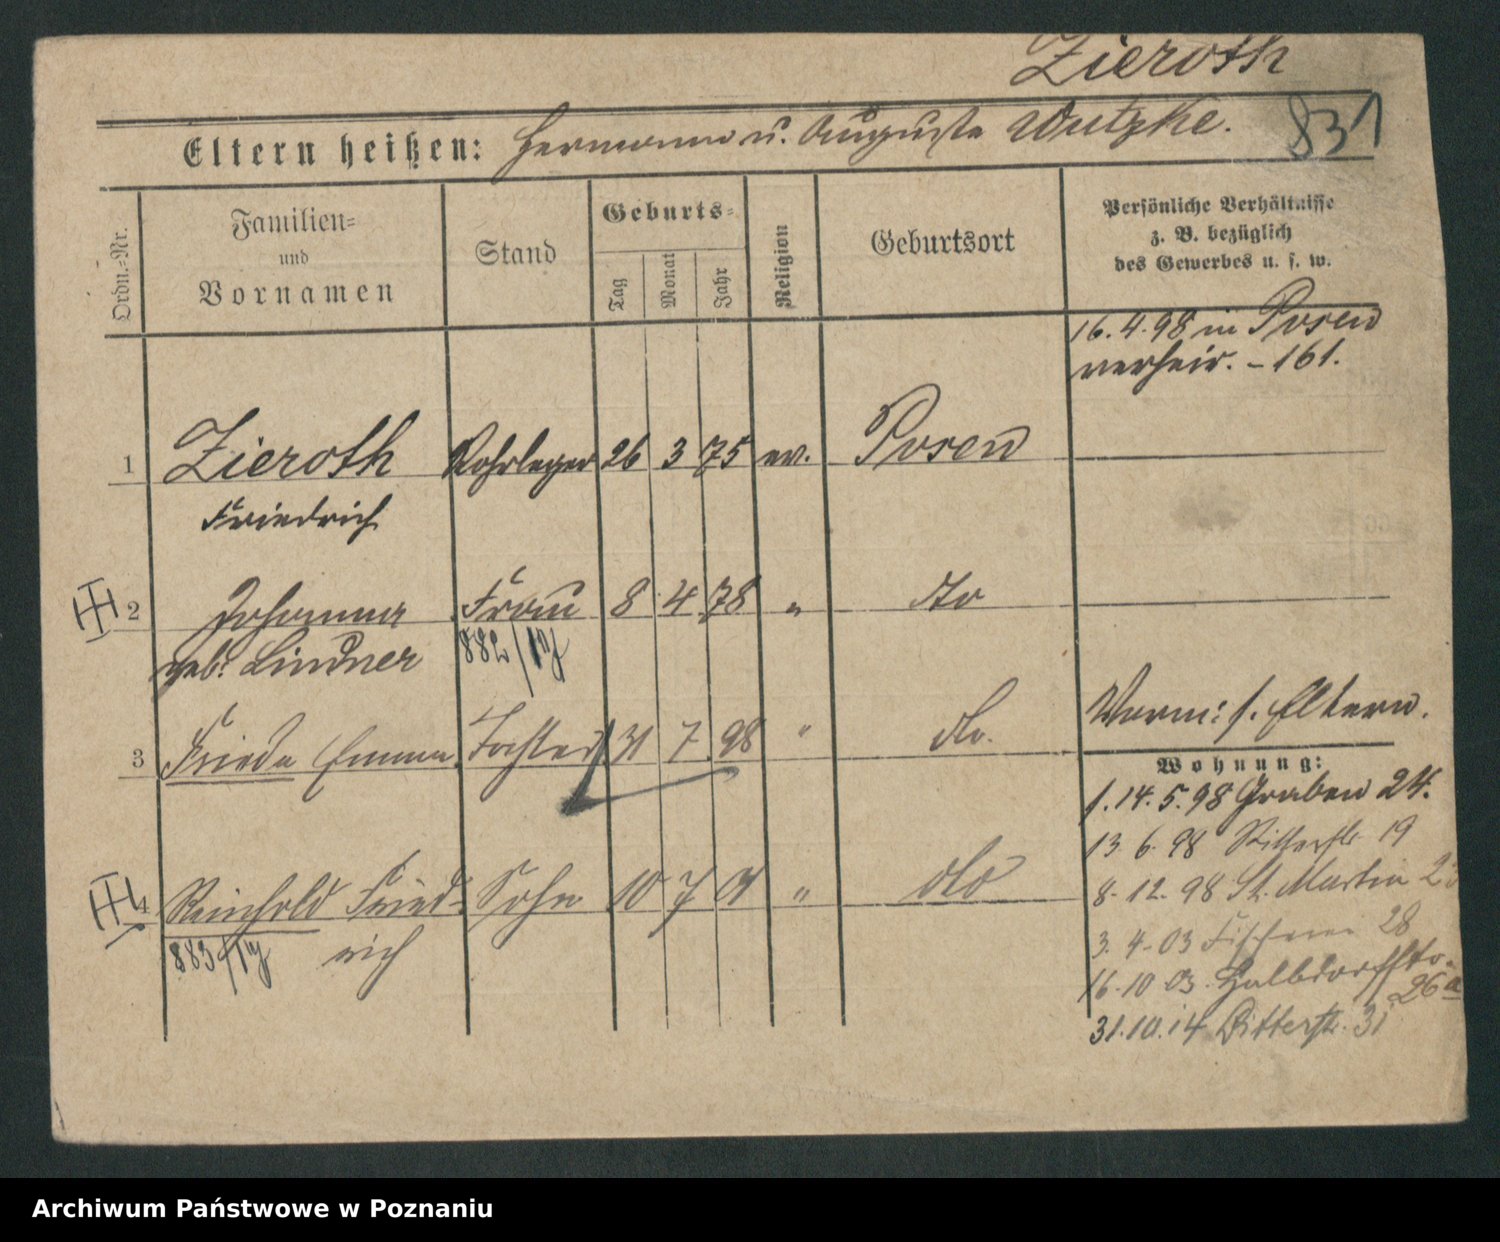 Zieroth
831
Eltern heißen: Hermann u. Auguste Wutzke.
Ordn.-Nr.
Familien- und Vornamen
Stand
Geburts-
Tag
Monat
Jahr
Religion
Geburtsort
Persönliche Verhältnisse
z. B. bezüglich
des Gewerbes u. s. w.
16.4.98 in Posen
verheir. - 161.
1 Zieroth Rohrleger 26 3 75 ev. Posen
Friedrich
2 Johanna Frau 8 4 78 " dto
geb. Lindner 882/
3 Frieda Emma Tochter 31 7 98 " do.
Vorm: s. Eltern.
Wohnung:
1. 14. 5. 98 Graben 24.
13 6. 98 Ritterstr 19
8. 12. 98 St. Martin
4 Reinhold Fried- Sohn 10 7 01 " dto
rich
883/
3. 4. 03 Fischerei 28
16. 10 03. Halbdorfstr.
26a
31.10.14 Ritterstr. 31
Archiwum Państwowe w Poznaniu